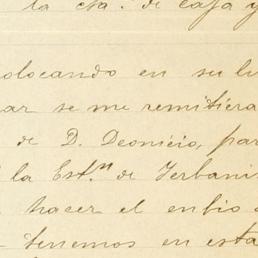 la cta. de caja y
olocando en su lu
ar se me remitiera
de D. Deonicio, par
la Est.ⁿ de Yerbani
hacer el enbio
tenemos en esta